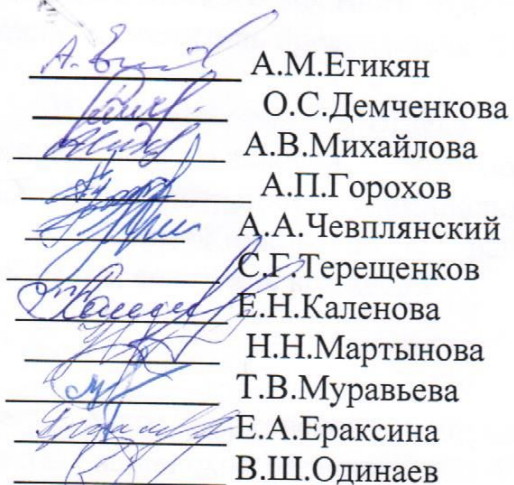 А.М.Егикян
О.С.Демченкова
А.В.Михайлова
А.П.Горохов
А.А.Чевплянский
С.Г.Терещенков
Е.Н.Каленова
Н.Н.Мартынова
Т.В.Муравьева
Е.А.Ераксина
В.Ш.Одинаев